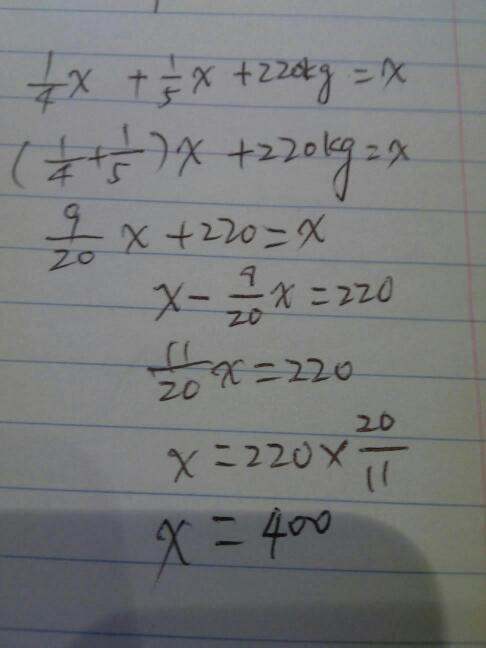 1/4 x + 1/5 x + 220kg = x
(1/4 + 1/5) x + 220kg = x
9/20 x + 220 = x
x - 9/20 x = 220
11/20 x = 220
x = 220 × 20/11
x = 400